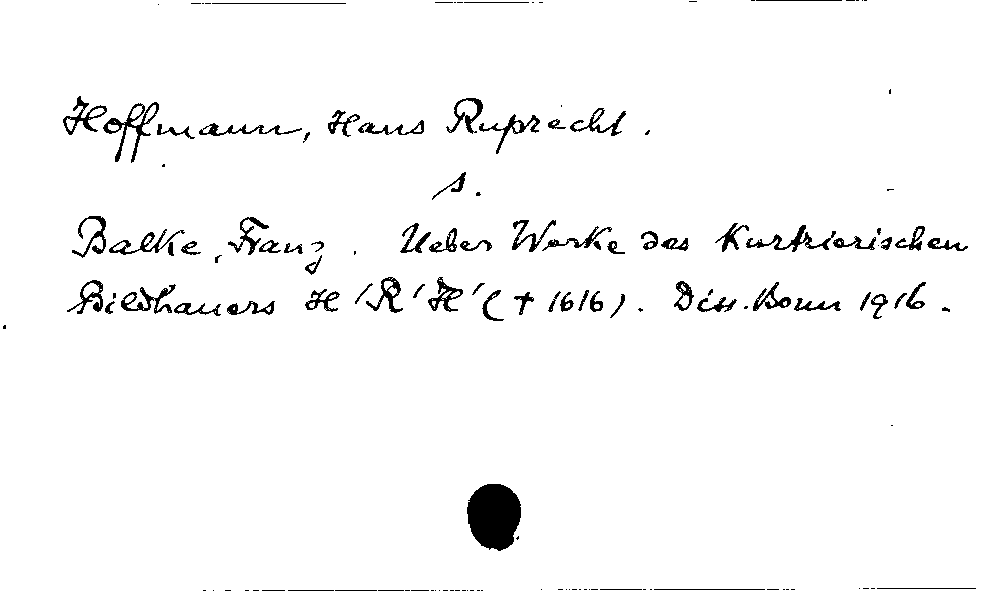 Hoffmann, Hans Ruprecht.
s.
Balke, Franz. Ueber Werke des Kurtrierischen
Bildhauers H'R'H' († 1616). Diss. Bonn 1916.